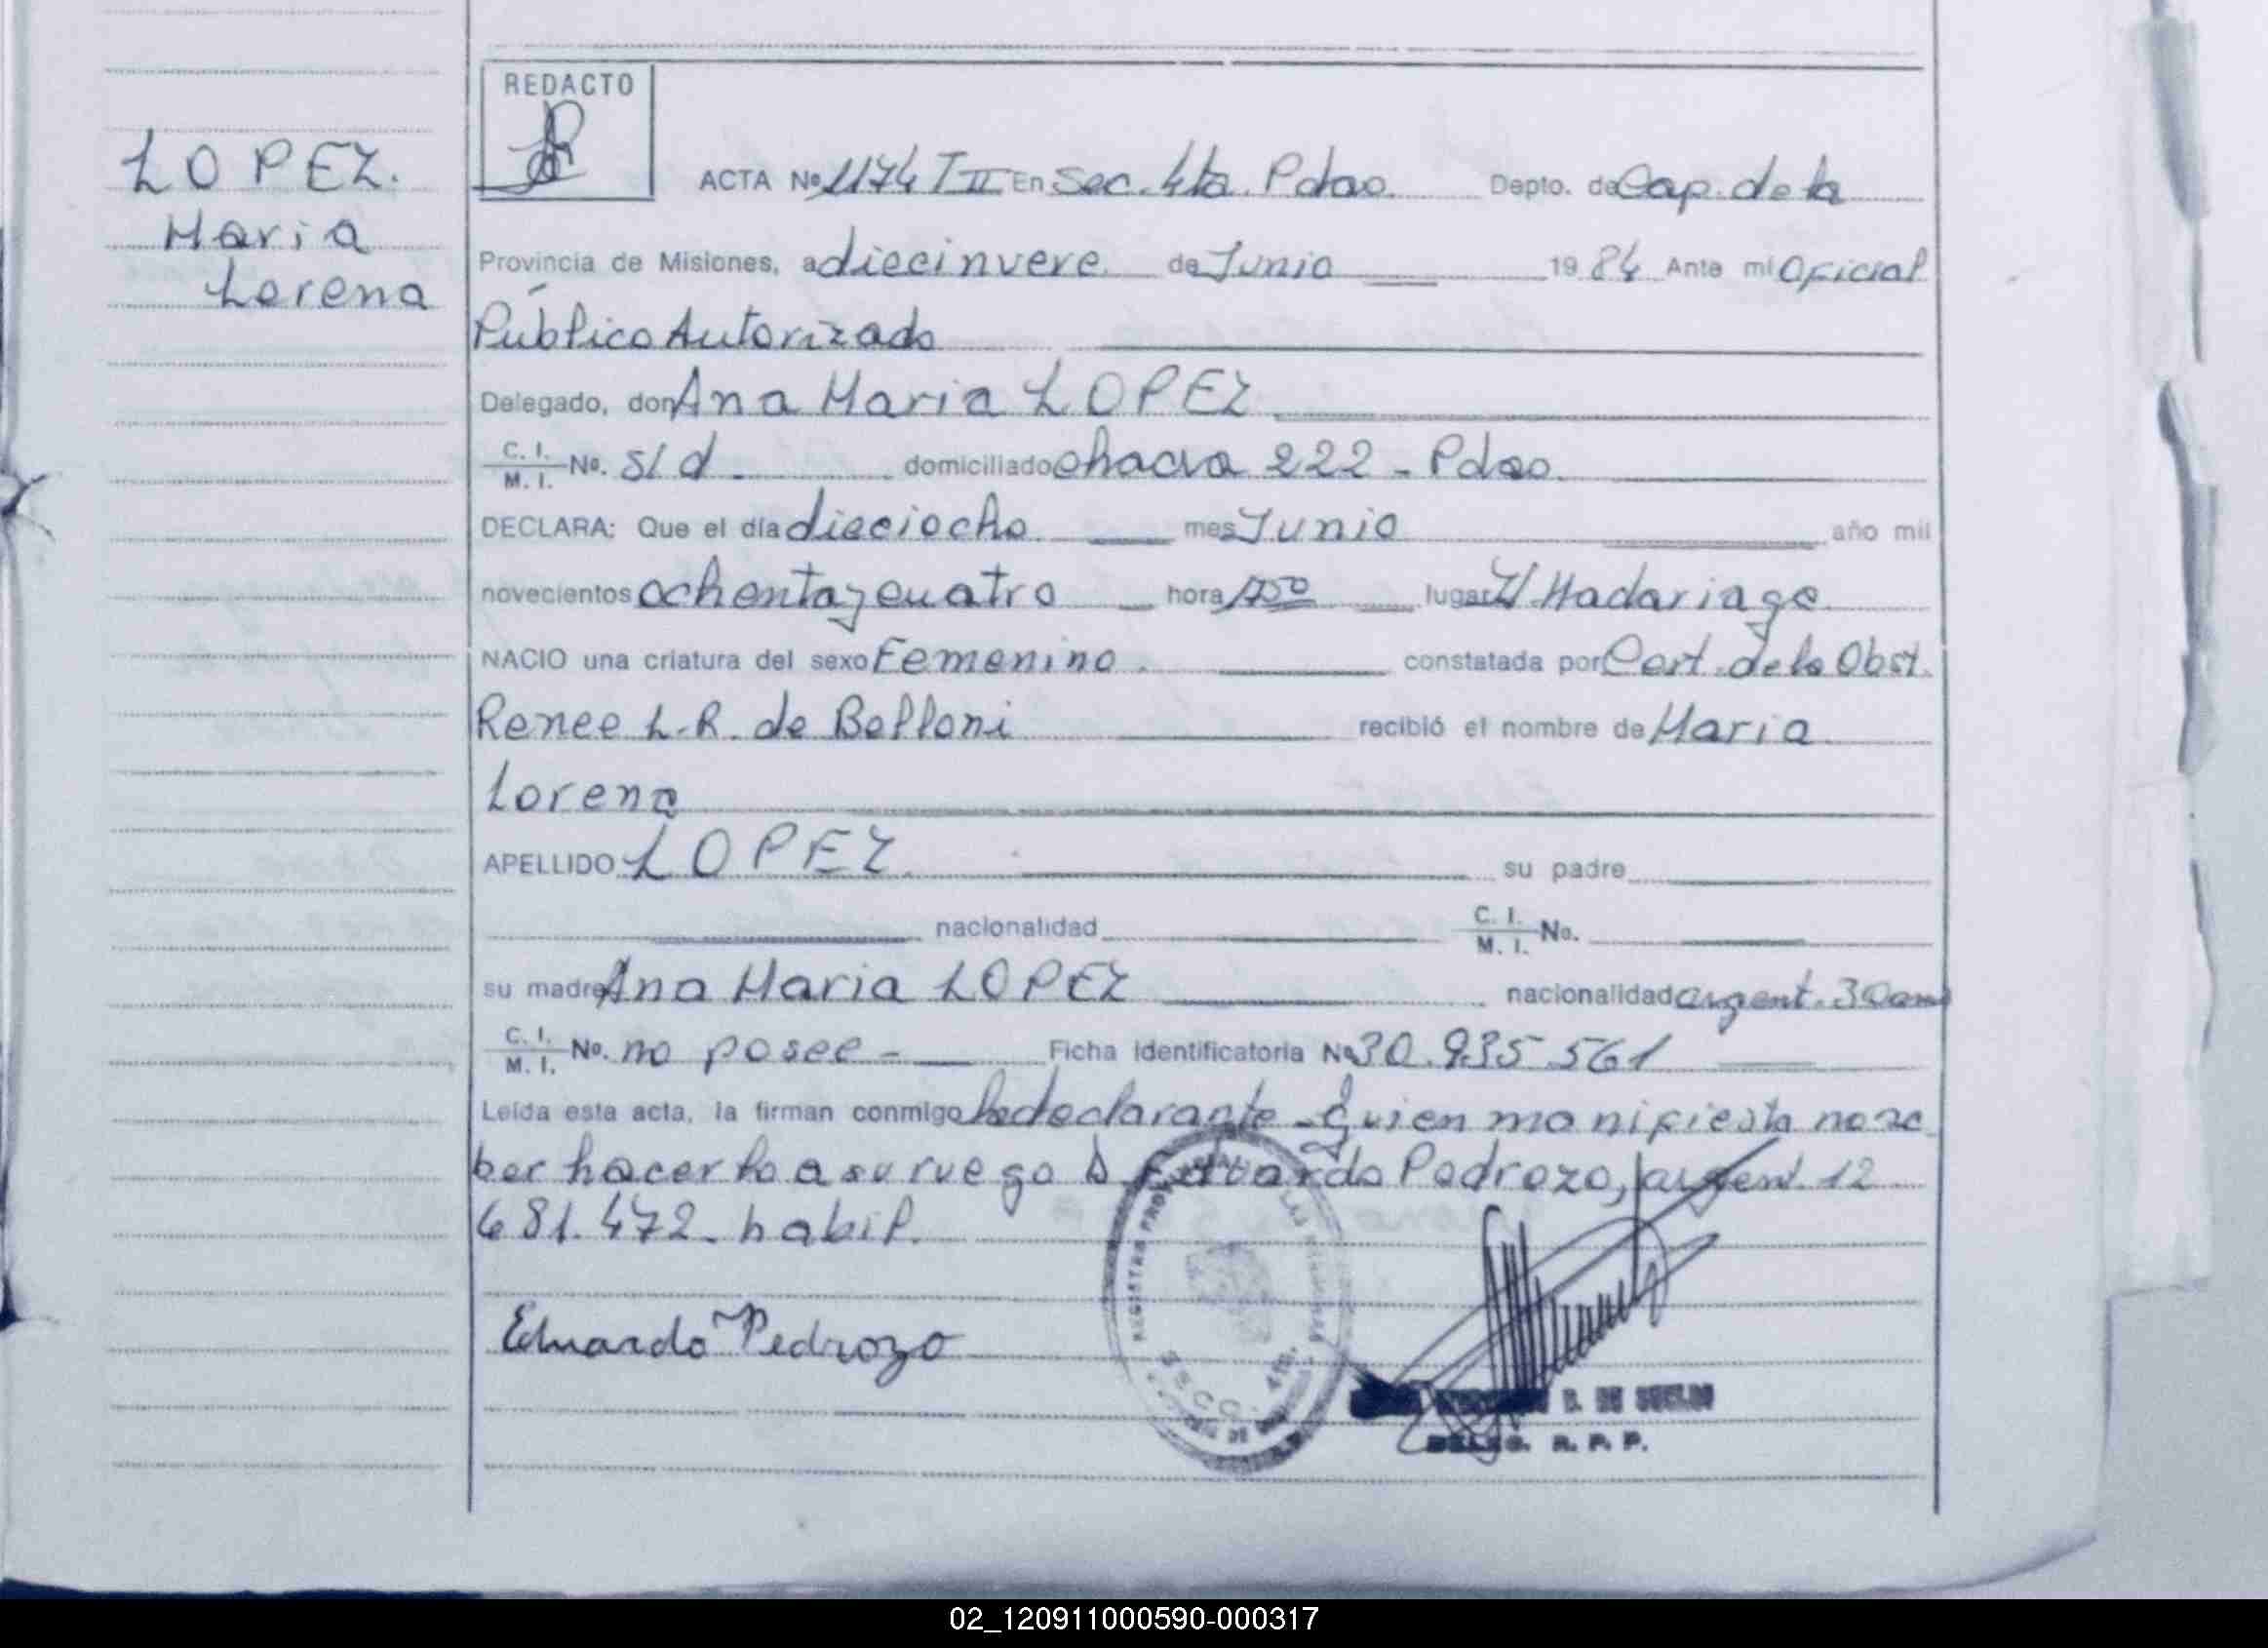 REDACTO
LOPEZ.
Maria
Lorena
ACTA Nº 1174 T II En Sec. 4ta. Pdas. Depto. de Cap. de la
Provincia de Misiones, a diecinueve de Junio 1984 Ante mi Oficial
Público Autorizado
Delegado, don Ana Maria LOPEZ
C. I. M. I. No. s/d. domiciliado chacra 222 - Pdas.
DECLARA: Que el día dieciocho mes Junio año mil
novecientos ochenta y cuatro hora lugar H. Madariaga
NACIO una criatura del sexo Femenino. constatada por Cert. de la Obst.
Renee L. R. de Belloni recibió el nombre de Maria
Lorena
APELLIDO LOPEZ. su padre
nacionalidad C. I. M. I. No.
su madre Ana Maria LOPEZ nacionalidad argent. 30 años
C. I. M. I. No. no posee - Ficha identificatoria No 30.935.561
Leída esta acta, la firman conmigo la declarante - Quien manifiesta no sa
ber hacerlo a su ruego D Eduardo Pedrozo, argent. 12
681.472. habil.
Eduardo Pedrozo
REGISTRO PROVINCIAL DE LAS PERSONAS
SECC. 4ta.
DE R. P. P.
02_120911000590-000317